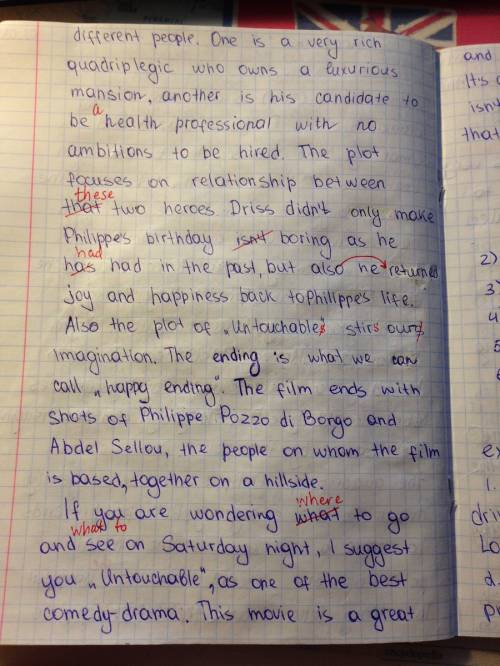 different people. One is a very rich
quadriplegic who owns a luxurious
mansion, another is his candidate to
a
be health professional with no
ambitions to be hired. The plot
focuses on relationship between
these
that two heroes Driss didn't only make
Philippe's birthday isn't boring as he
had
has had in the past, but also he returned
joy and happiness back to Philippe's life.
Also the plot of „Untouchables stirs ours
imagination. The ending is what we can
call „happy ending". The film ends with
shots of Philippe Pozzo di Borgo and
Abdel Sellou, the people on whom the film
is based, together on a hillside.
where
If you are wondering what to go
what to
and see on Saturday night, I suggest
you „Untouchable", as one of the best
comedy-drama. This movie is a great
and
It's
isn
that
2)
3
4
5
e)
1.
driv
Lo
d